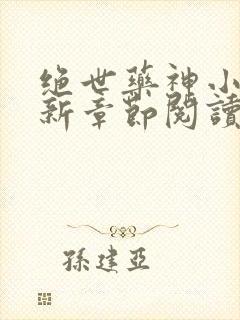 绝世药神小
新章節閱讀
孫建亞